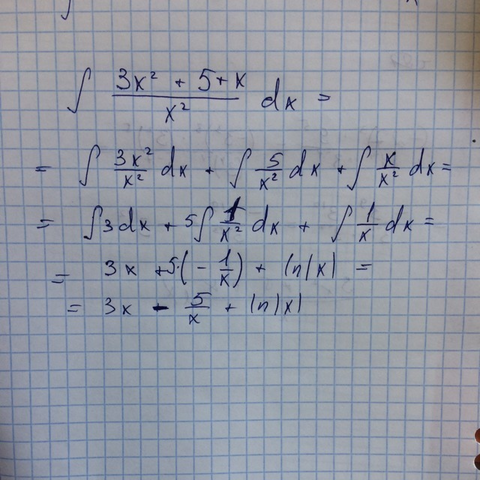 ∫ (3x² + 5 + x)/x² dx =
= ∫ 3x²/x² dx + ∫ 5/x² dx + ∫ x/x² dx =
= ∫3 dx + 5∫ 1/x² dx + ∫ 1/x dx =
= 3x + 5·(- 1/x) + ln|x| =
= 3x - 5/x + ln|x|